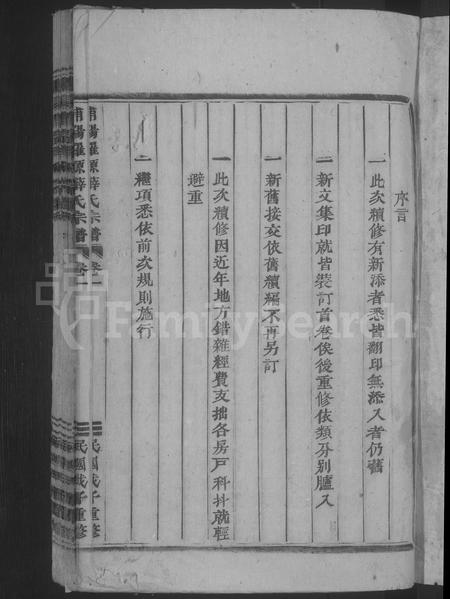 序言
一此次續修有新添者悉皆翻印無添入者仍舊
一新文集印就皆裝訂首卷俟後重修依類分別臚入
一新舊接交依舊續編不再另訂
一此次續修因近年地方錯雜經費支拙各房戶科抖就輕
避重
一繼項悉依前次規則施行
浦陽羅源薛氏宗譜 卷一 民國戊子重修
浦陽羅源薛氏宗譜 卷一 民國戊子重修
FamilySearch